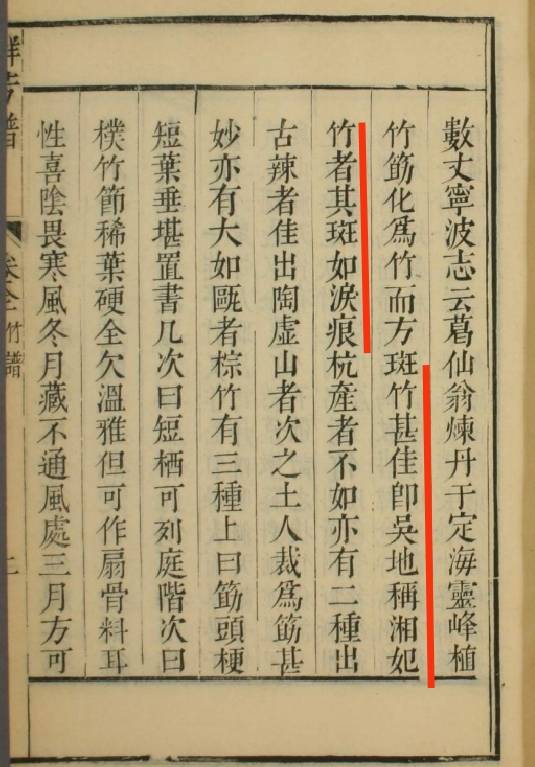 數丈寧波志云葛仙翁煉丹于定海靈峰植
竹筯化爲竹而方斑竹甚佳卽吳地稱湘妃
竹者其斑如淚痕杭產者不如亦有二種出
古辣者佳出陶虛山者次之土人裁爲筯甚
妙亦有大如甌者棕竹有三種上曰筯頭梗
短葉垂堪置書几次曰短栖可列庭階次曰
樸竹節稀葉硬全欠溫雅但可作扇骨料耳
性喜陰畏寒風冬月藏不通風處三月方可
竹譜